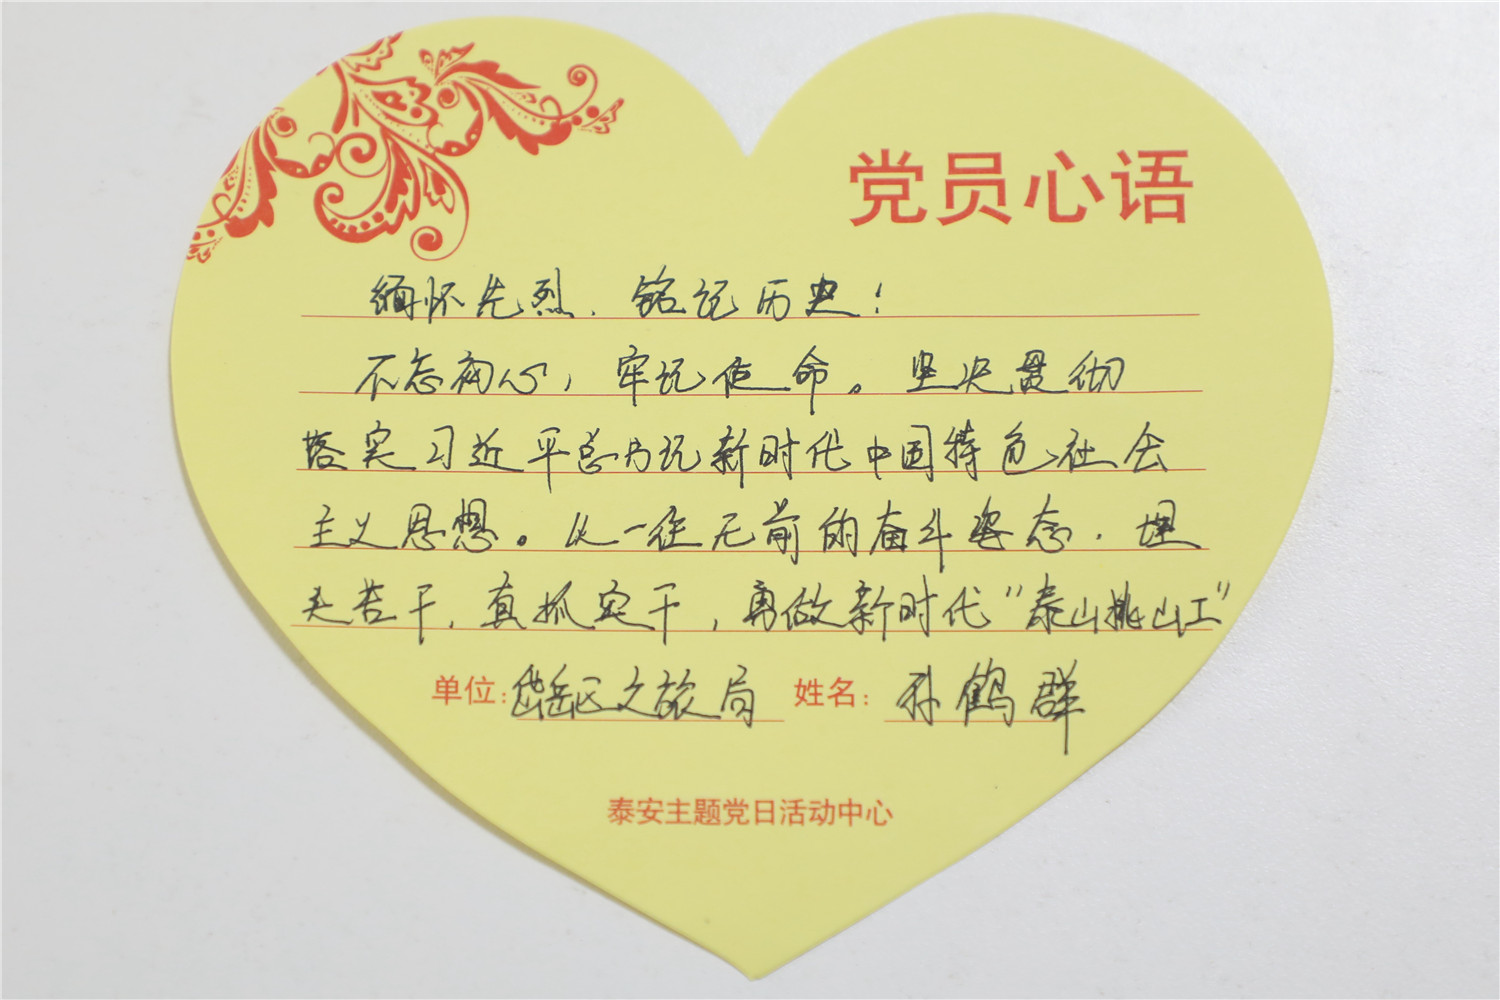 党员心语
缅怀先烈，铭记历史！
不忘初心，牢记使命。坚决贯彻
落实习近平总书记新时代中国特色社会
主义思想。以一往无前的奋斗姿态，埋
头苦干，真抓实干，勇做新时代“泰山挑山工”
单位：岱岳区文旅局 姓名：孙鹤群
泰安主题党日活动中心